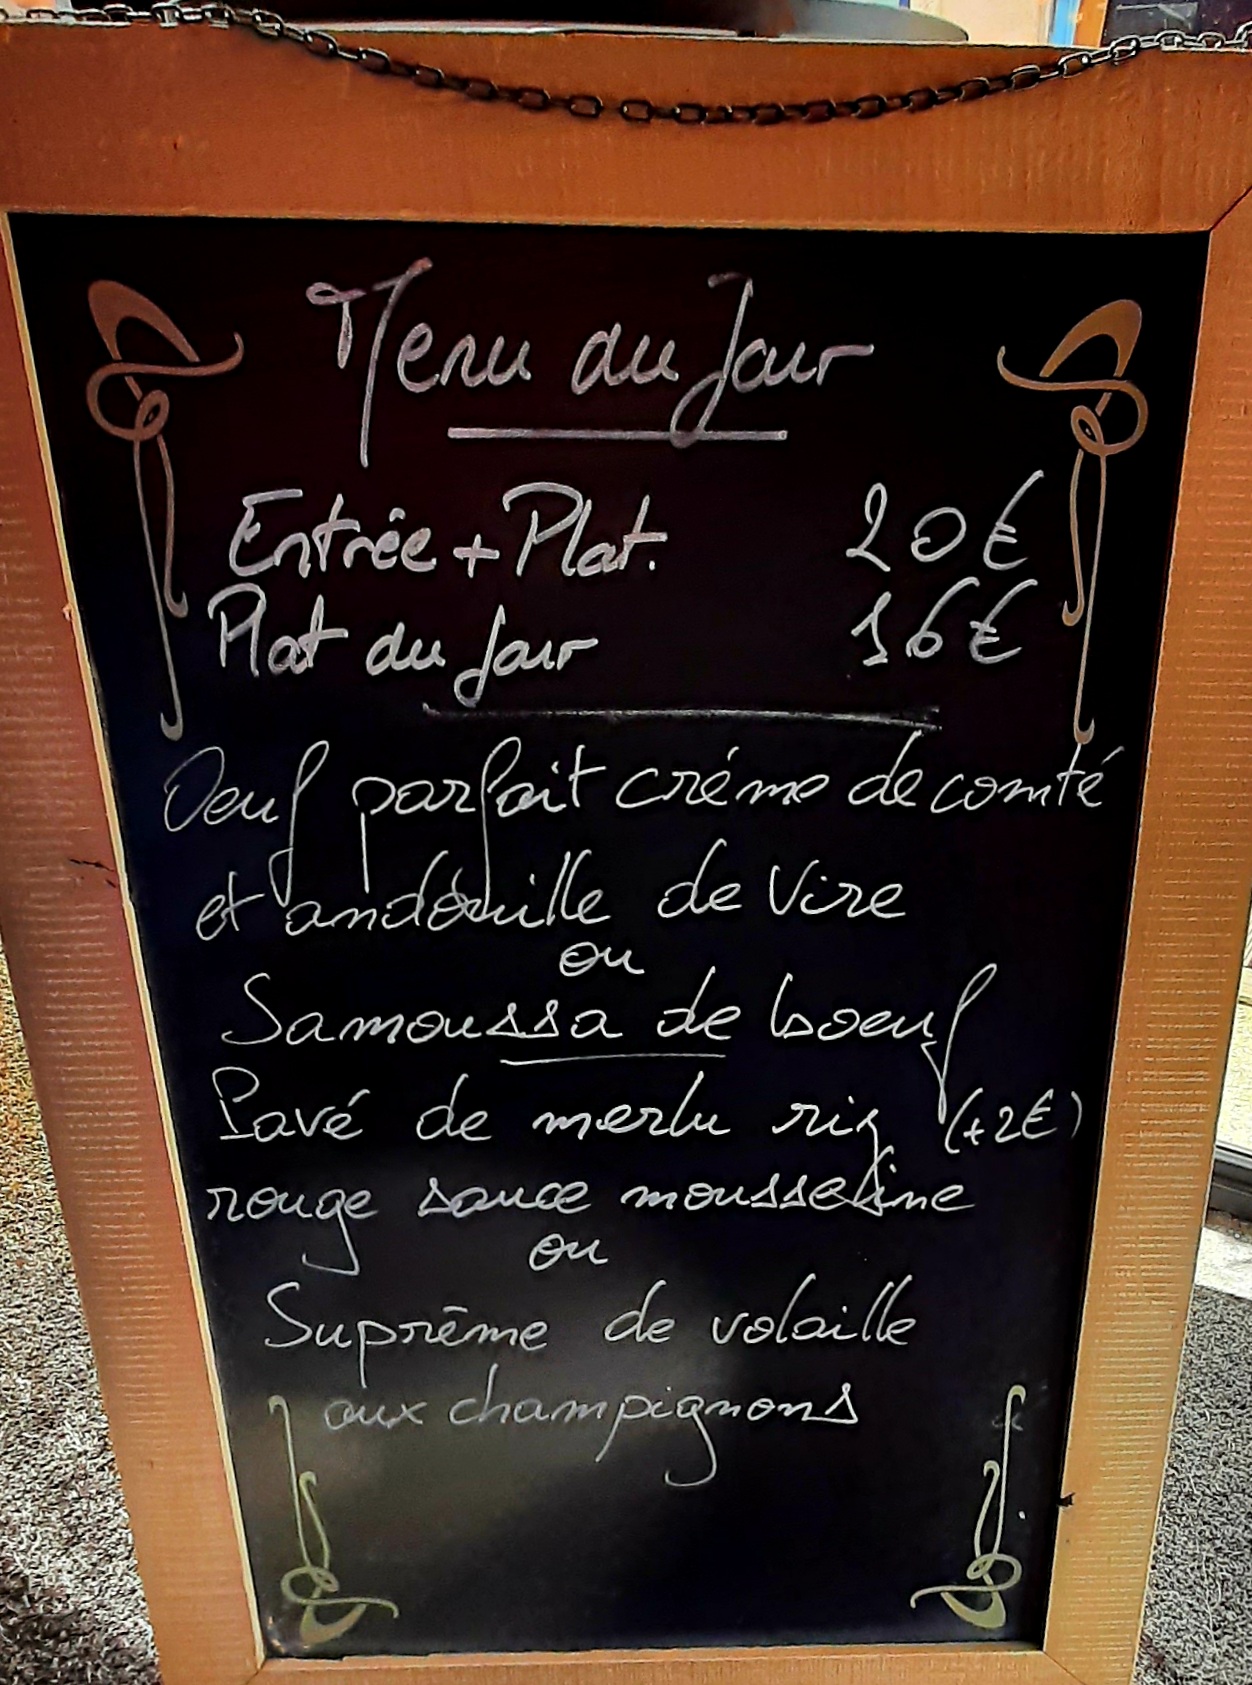 Menu du Jour
Entrée + Plat. 20€
Plat du Jour 16€
Oeuf parfait crème de comté
et andouille de Vire
ou
Samoussa de boeuf
Pavé de merlu riz (+2€)
rouge sauce mousseline
ou
Suprême de volaille
aux champignons